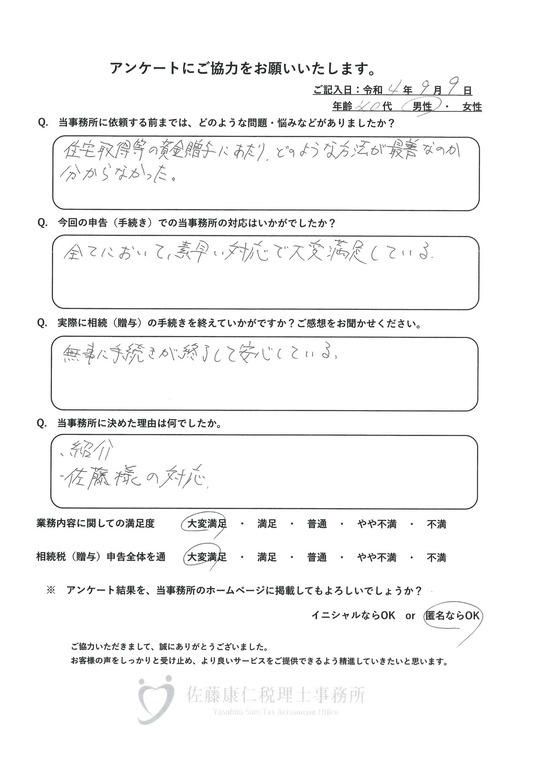 アンケートにご協力をお願いいたします。
ご記入日：令和 4 年 9 月 9 日
年齢 40 代 男性 ・ 女性
Q. 当事務所に依頼する前までは、どのような問題・悩みなどがありましたか？
住宅取得等の資金贈与にあたり、どのような方法が最善なのか
分からなかった。
Q. 今回の申告（手続き）での当事務所の対応はいかがでしたか？
全てにおいて、素早い対応で大変満足している。
Q. 実際に相続（贈与）の手続きを終えていかがですか？ご感想をお聞かせください。
無事に手続きが終了して安心している。
Q. 当事務所に決めた理由は何でしたか。
・紹介
・佐藤様の対応。
業務内容に関しての満足度 大変満足 ・ 満足 ・ 普通 ・ やや不満 ・ 不満
相続税（贈与）申告全体を通 大変満足 ・ 満足 ・ 普通 ・ やや不満 ・ 不満
※ アンケート結果を、当事務所のホームページに掲載してもよろしいでしょうか？
イニシャルならOK or 匿名ならOK
ご協力いただきまして、誠にありがとうございました。
お客様の声をしっかりと受け止め、より良いサービスをご提供できるよう精進していきたいと思います。
佐藤康仁税理士事務所
Yasuhito Sato Tax Accountant Office